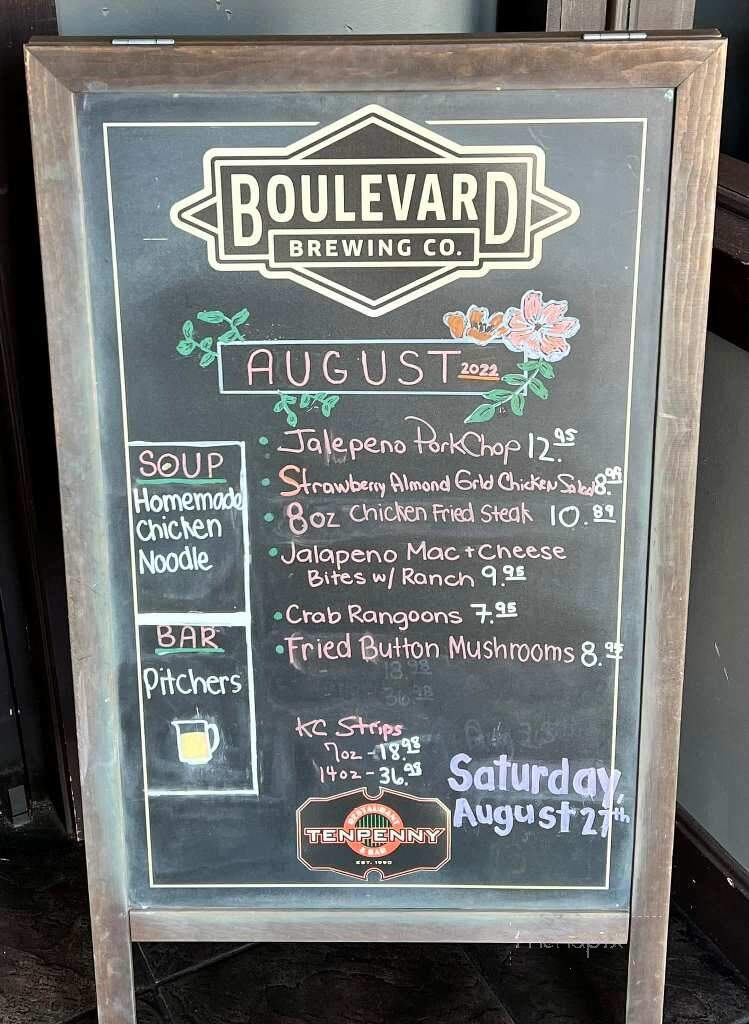 BOULEVARD
BREWING CO.
AUGUST 2022
SOUP
Homemade
Chicken
Noodle
BAR
Pitchers
Jalepeno Pork Chop 12.95
Strawberry Almond Grld Chicken Salad 8.99
8oz Chicken Fried Steak 10.89
Jalapeno Mac + Cheese
Bites w/ Ranch 9.95
Crab Rangoons 7.95
Fried Button Mushrooms 8.95
18.98
36.98
KC Strips
7oz - 18.98
14oz - 36.98
Saturday,
August 27th
RESTAURANT
TENPENNY
& BAR
EST. 1990
menupix